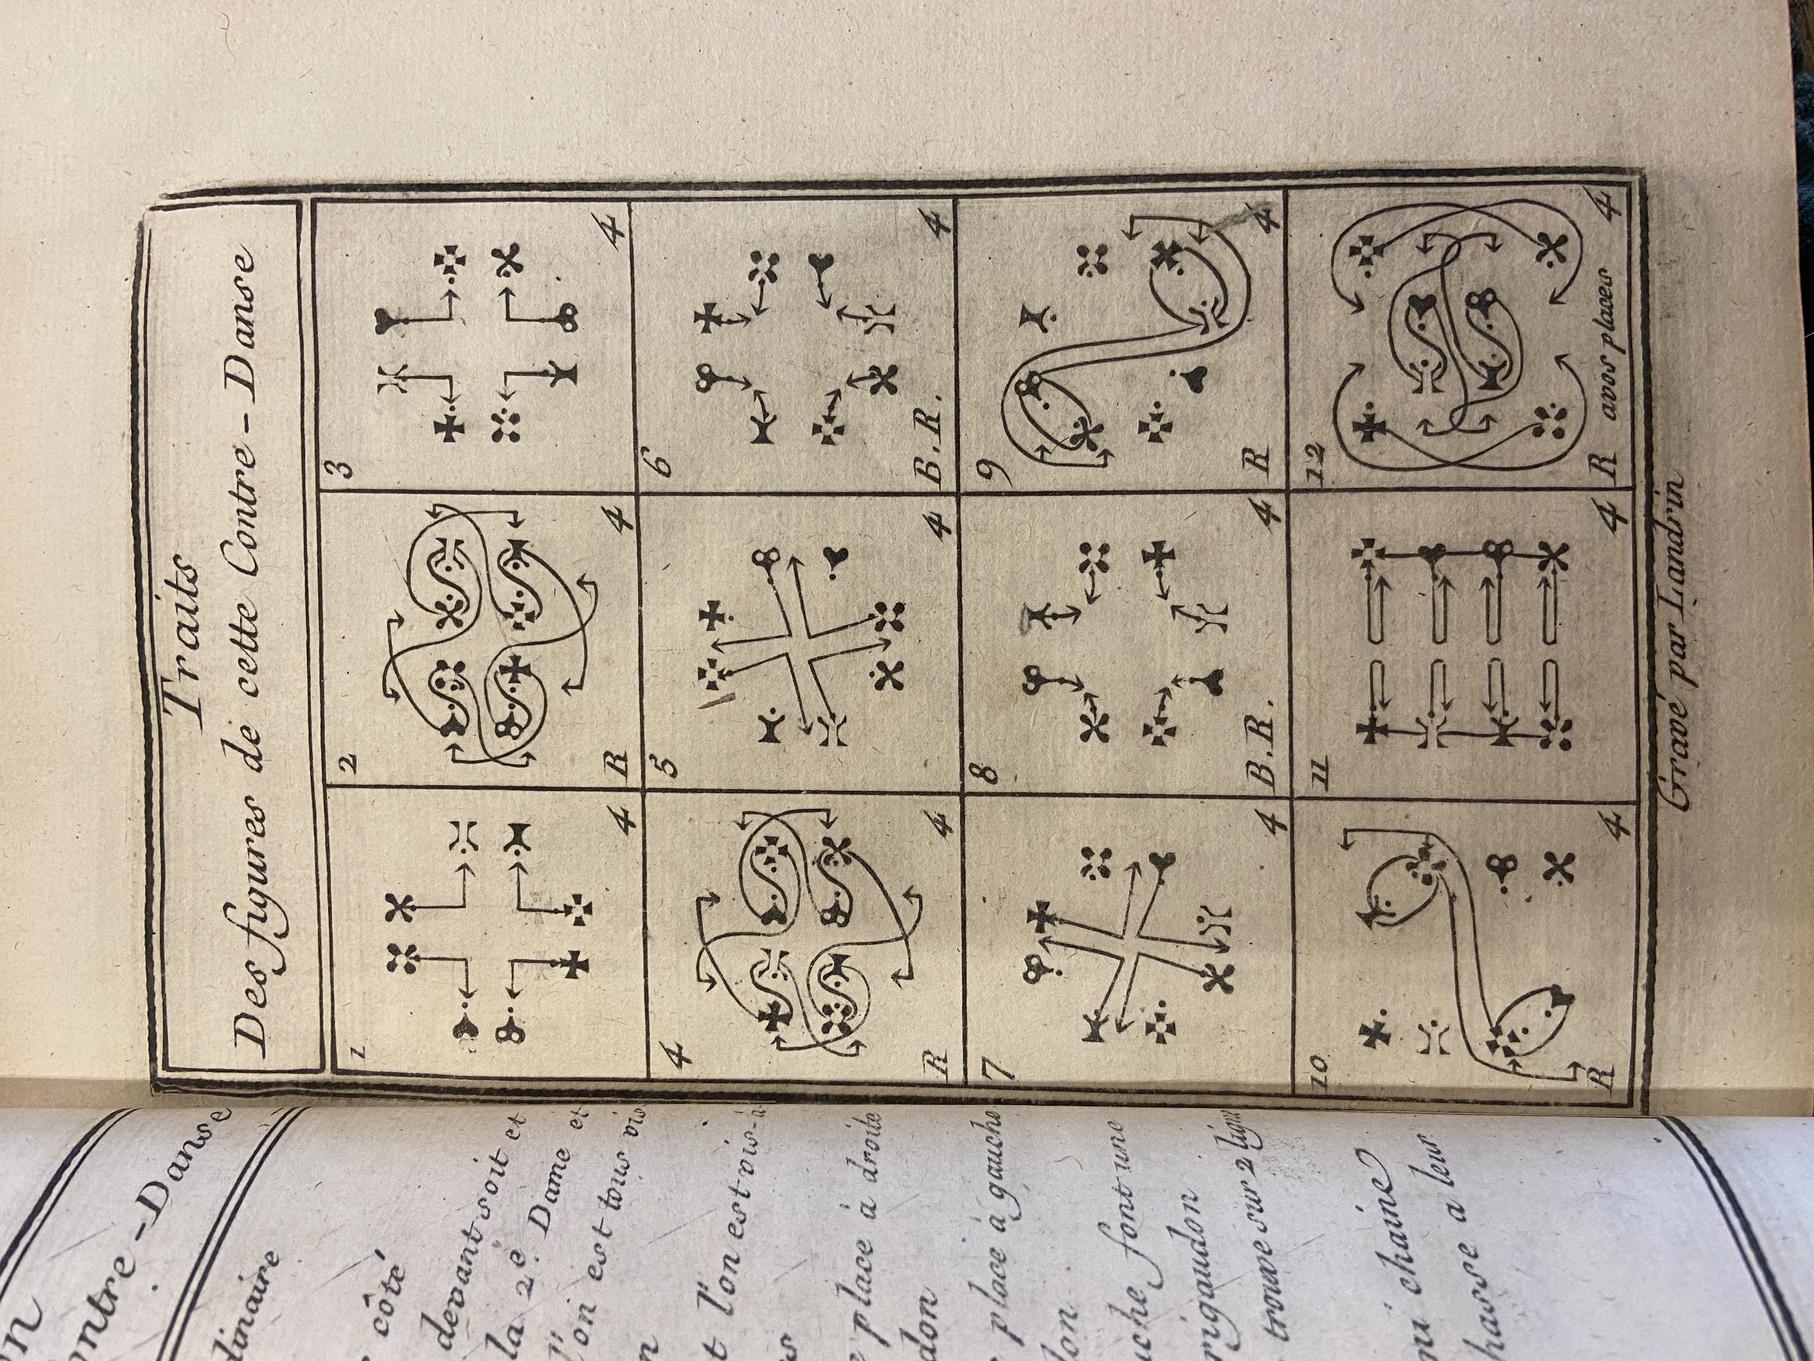 Traits
Des figures de cette Contre-Danse
1
4
2
R
4
3
4
4
R
4
5
4
6
B.R.
4
7
4
8
B.R.
4
9
R
4
10
R
4
11
4
12
R
avos places
4
Gravé par Landrin
ontre-Danse
dinaire
côté
devant soit et
la 2e. Dame et
l'on est tous vis
t l'on est vis-à
place à droite
don
place à gauche
don
uche font une
rigaudon
trouve sur 2 lign
mi chaine
hasse a leur